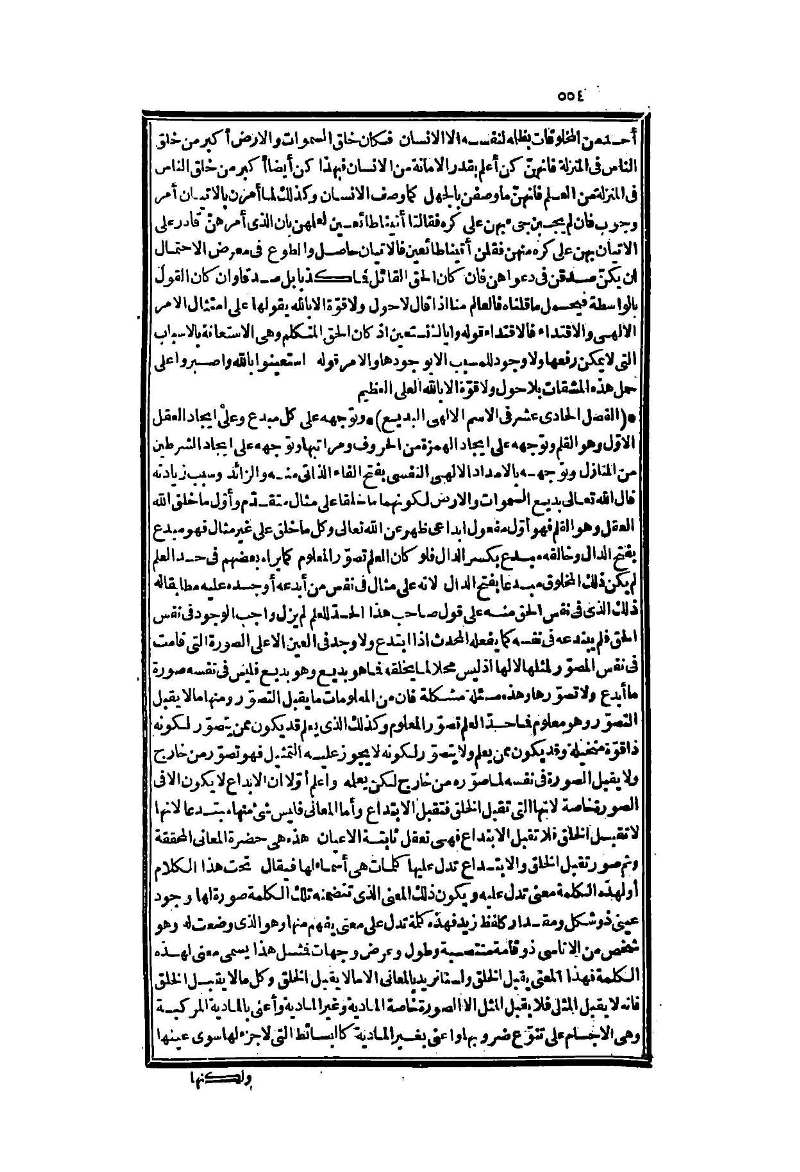 ٥٥٤
أحد من المخلوقات بظلمه لنفسه الا الانسان فكان خلق السموات والارض أكبر من خلق
الناس فى المنزلة فانهن كن أعلم بقدر الامانة من الانسان فبهذا كن أيضا أكبر من خلق الناس
فى المنزلة من العلم فانهن ما وصفن بالجهل كما وصف الانسان وكذلك لما أمرن بالاتيان أمر
وجوب فان لم يجبن جىء بهن على كره فقالتا أتيناطائعين لعلمهن بان الذى أمرهن قادر على
الاتيان بهن على كره منهن فقلن أتيناطائعين فالاتيان حاصل والطوع فى معرض الاحتمال
ان يكن صدقن فى دعواهن فان كان الحق القائل فما كذبا بل صدقا وان كان القول
بالواسطة فيحتمل ما قلناه فالعالم منا اذا قال لا حول ولا قوة الا بالله يقولها على امتثال الامر
الالهى والاقتداء فالاقتداء قوله واياك نستعين اذ كان الحق المتكلم وهى الاستعانة بالاسباب
التى لا يمكن رفعها ولا وجود للمسبب الا بوجودها والامر قوله استعينوا بالله واصبروا على
حمل هذه المشقات بلا حول ولا قوة الا بالله العلى العظيم
*(الفصل الحادى عشر فى الاسم الالهى البديع)* وتوجهه على كل مبدع وعلى ايجاد العقل
الاول وهو القلم وتوجهه على ايجاد الهمزة من الحروف ومراتبها وتوجهه على ايجاد الشرطين
من المنازل وتوجهه بالامداد الالهى النفسى بفتح الفاء الذاتى منه والزائد وسبب زيادته
قال الله تعالى بديع السموات والارض لكونهما ما خلقا على مثال متقدم وأول ما خلق الله
العقل وهو القلم فهو أول مفعول ابداعى ظهر عن الله تعالى وكل ما خلق على غير مثال فهو مبدع
بفتح الدال وخالقه مبدع بكسر الدال فلو كان العلم تصور المعلوم كما يراه بعضهم فى حد العلم
لم يكن ذلك المخلوق مبدعا بفتح الدال لانه على مثال فى نفس من أبدعه أوجده عليه مطابقا له
ذلك الذى فى نفس الحق منه على قول صاحب هذا الحد للعلم لم يزل واجب الوجود فى نفس
الحق فلم يبتدعه فى نفسه كما يفعله المحدث اذا ابتدع ولا وجد فى العين الا على الصورة التى قامت
فى نفس المصور لمثلها لا لها اذ ليس محلا لما يخلقه فما هو بديع وهو بديع فليس فى نفسه صورة
ما أبدع ولا تصورها وهذه مسئلة مشكلة فان من المعلومات ما يقبل التصور ومنها مالا يقبل
التصور وهو معلوم فما حد العلم تصور المعلوم وكذلك الذى يعلم قد يكون ممن يتصور لكونه
ذا قوة متخيلة وقد يكون ممن يعلم ولا يتصور لكونه لا يجوز عليه التمثيل فهو تصور من خارج
ولا يقبل الصورة فى نفسه لما صوره من خارج لكن يعلمه واعلم أولا ان الابداع لا يكون الا فى
الصور خاصة لانها التى تقبل الخلق فتقبل الابتداع وأما المعانى فليس شئ منها مبتدعا لانها
لا تقبل الخلق فلا تقبل الابتداع فهى تعقل ثابتة الاعيان هذه هى حضرة المعانى المحققة
وثم صور تقبل الخلق والابتداع تدل عليها كلمات هى أسماء لها فيقال تحت هذا الكلام
أو لهذه الكلمة معنى تدل عليه ويكون ذلك المعنى الذى تتضمنه تلك الكلمة صورة لها وجود
عينى ذو شكل ومقدار كلفظ زيد فهذه كلمة تدل على معنى يفهم منها وهو الذى وضعت له وهو
شخص من الاناسى ذو قامة منتصبة وطول وعرض وجهات فمثل هذا يسمى معنى لهذه
الكلمة فهذا المعنى يقبل الخلق ولسنا نريد بالمعانى الا ما لا يقبل الخلق وكل ما لا يقبل الخلق
فانه لا يقبل المثل فلا يقبل المثل الا الصورة خاصة المادية وغير المادية وأعنى بالمادية المركبة
وهى الاجسام على تنوع ضروبها واعنى بغير المادية كالبسائط التى لا جزء لها سوى عينها
ولكنها